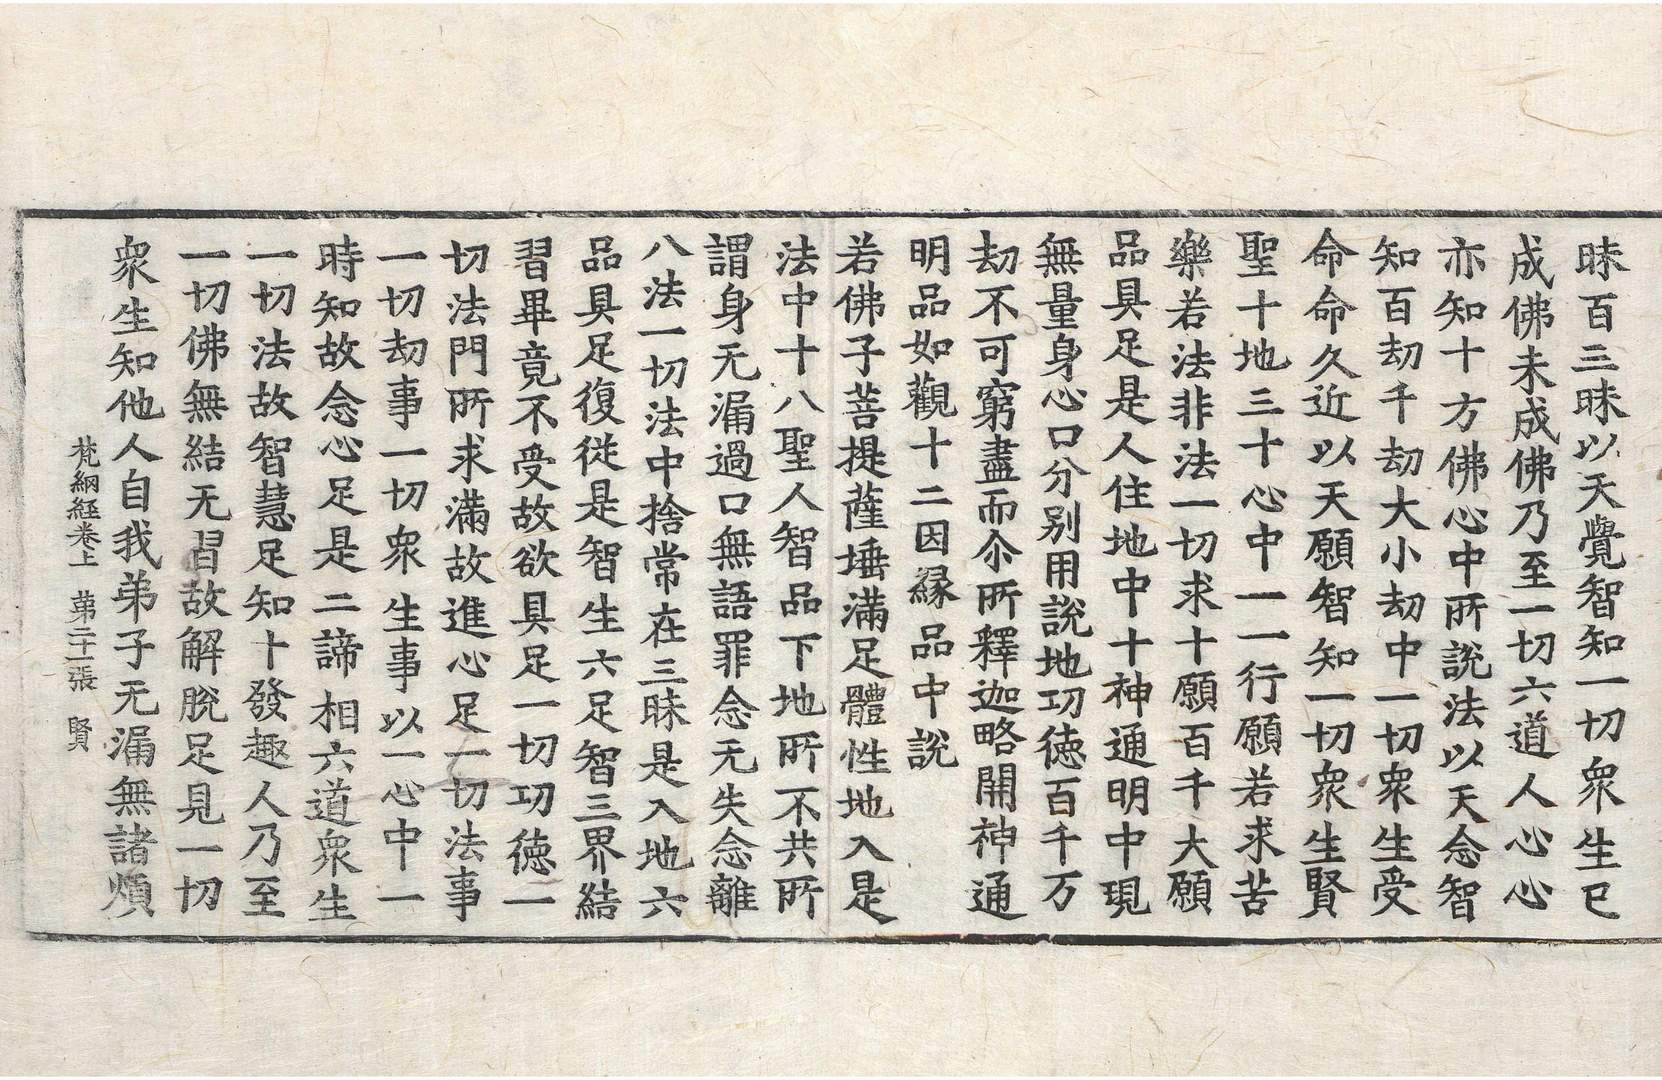 昧百三昧以天覺智知一切衆生已
成佛未成佛乃至一切六道人心心
亦知十方佛心中所說法以天念智
知百劫千劫大小劫中一切衆生受
命命久近以天願智知一切衆生賢
聖十地三十心中一一行願若求苦
樂若法非法一切求十願百千大願
品具足是人住地中十神通明中現
無量身心口分别用說地功德百千万
劫不可窮盡而尒所釋迦略開神通
明品如觀十二因緣品中說
若佛子菩提薩埵滿足體性地入是
法中十八聖人智品下地所不共所
謂身无漏過口無語罪念无失念離
八法一切法中捨常在三昧是入地六
品具足復從是智生六足智三界結
習畢竟不受故欲具足一切功德一
切法門所求滿故進心足一切法事
一切劫事一切衆生事以一心中一
時知故念心足是二諦相六道衆生
一切法故智慧足知十發趣人乃至
一切佛無結无習故解脫足見一切
衆生知他人自我弟子无漏無諸煩
梵網經卷上　第二十一張　賢